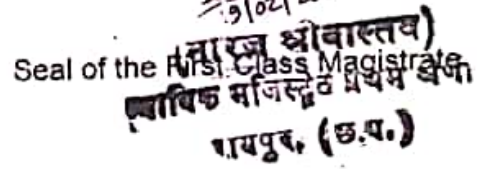 9/02/
(नीरज श्रीवास्तव)
Seal of the First Class Magistrate
न्यायिक मजिस्ट्रेट प्रथम श्रेणी
रायपुर, (छ.ग.)